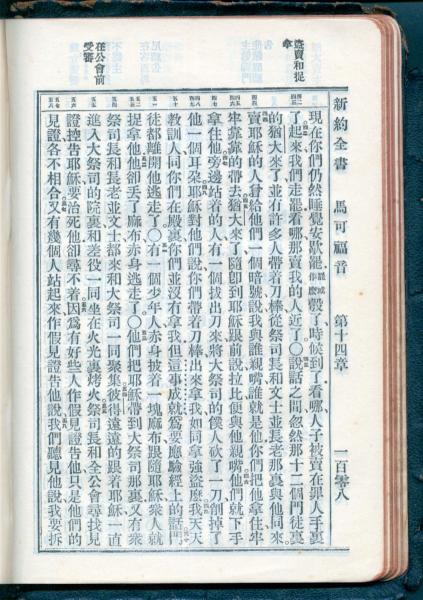 新約全書 馬可福音 第十四章 一百零八
賣和捉拿
在公會前受審
現在你們仍然睡覺安歇罷彀了時候到了看哪人子被賣在罪人手裏
了起來我們走罷看哪那賣我的人近了〇說話之間忽然那十二個門徒裏
的猶大來了並有許多人帶着刀棒從祭司長和文士並長老那裏與他同來
賣耶穌的人曾給他們一個暗號說我與誰親嘴誰就是他你們把他拿住牢
牢靠靠的帶去猶大來了隨即到耶穌跟前說拉比便與他親嘴他們就下手
拿住他旁邊站着的人有一個拔出刀來將大祭司的僕人砍了一刀削掉了
他一個耳朵耶穌對他們說你們帶着刀棒出來拿我如同拿強盜麼我天天
教訓人同你們在殿裏你們並沒有拿我但這事成就爲要應驗經上的話門
徒都離開他逃走了〇有一個少年人赤身披着一塊麻布跟隨耶穌衆人就
捉拿他他卻丟了麻布赤身逃走了〇他們把耶穌帶到大祭司那裏又有衆
祭司長和長老並文士都來和大祭司一同聚集彼得遠遠的跟着耶穌一直
進入大祭司的院裏和差役一同坐在火光裏烤火祭司長和全公會尋找見
證控告耶穌要治死他卻尋不着因爲有好些人作假見證告他只是他們的
見證各不相合又有幾個人站起來作假見證告他說我們聽見他說我要拆